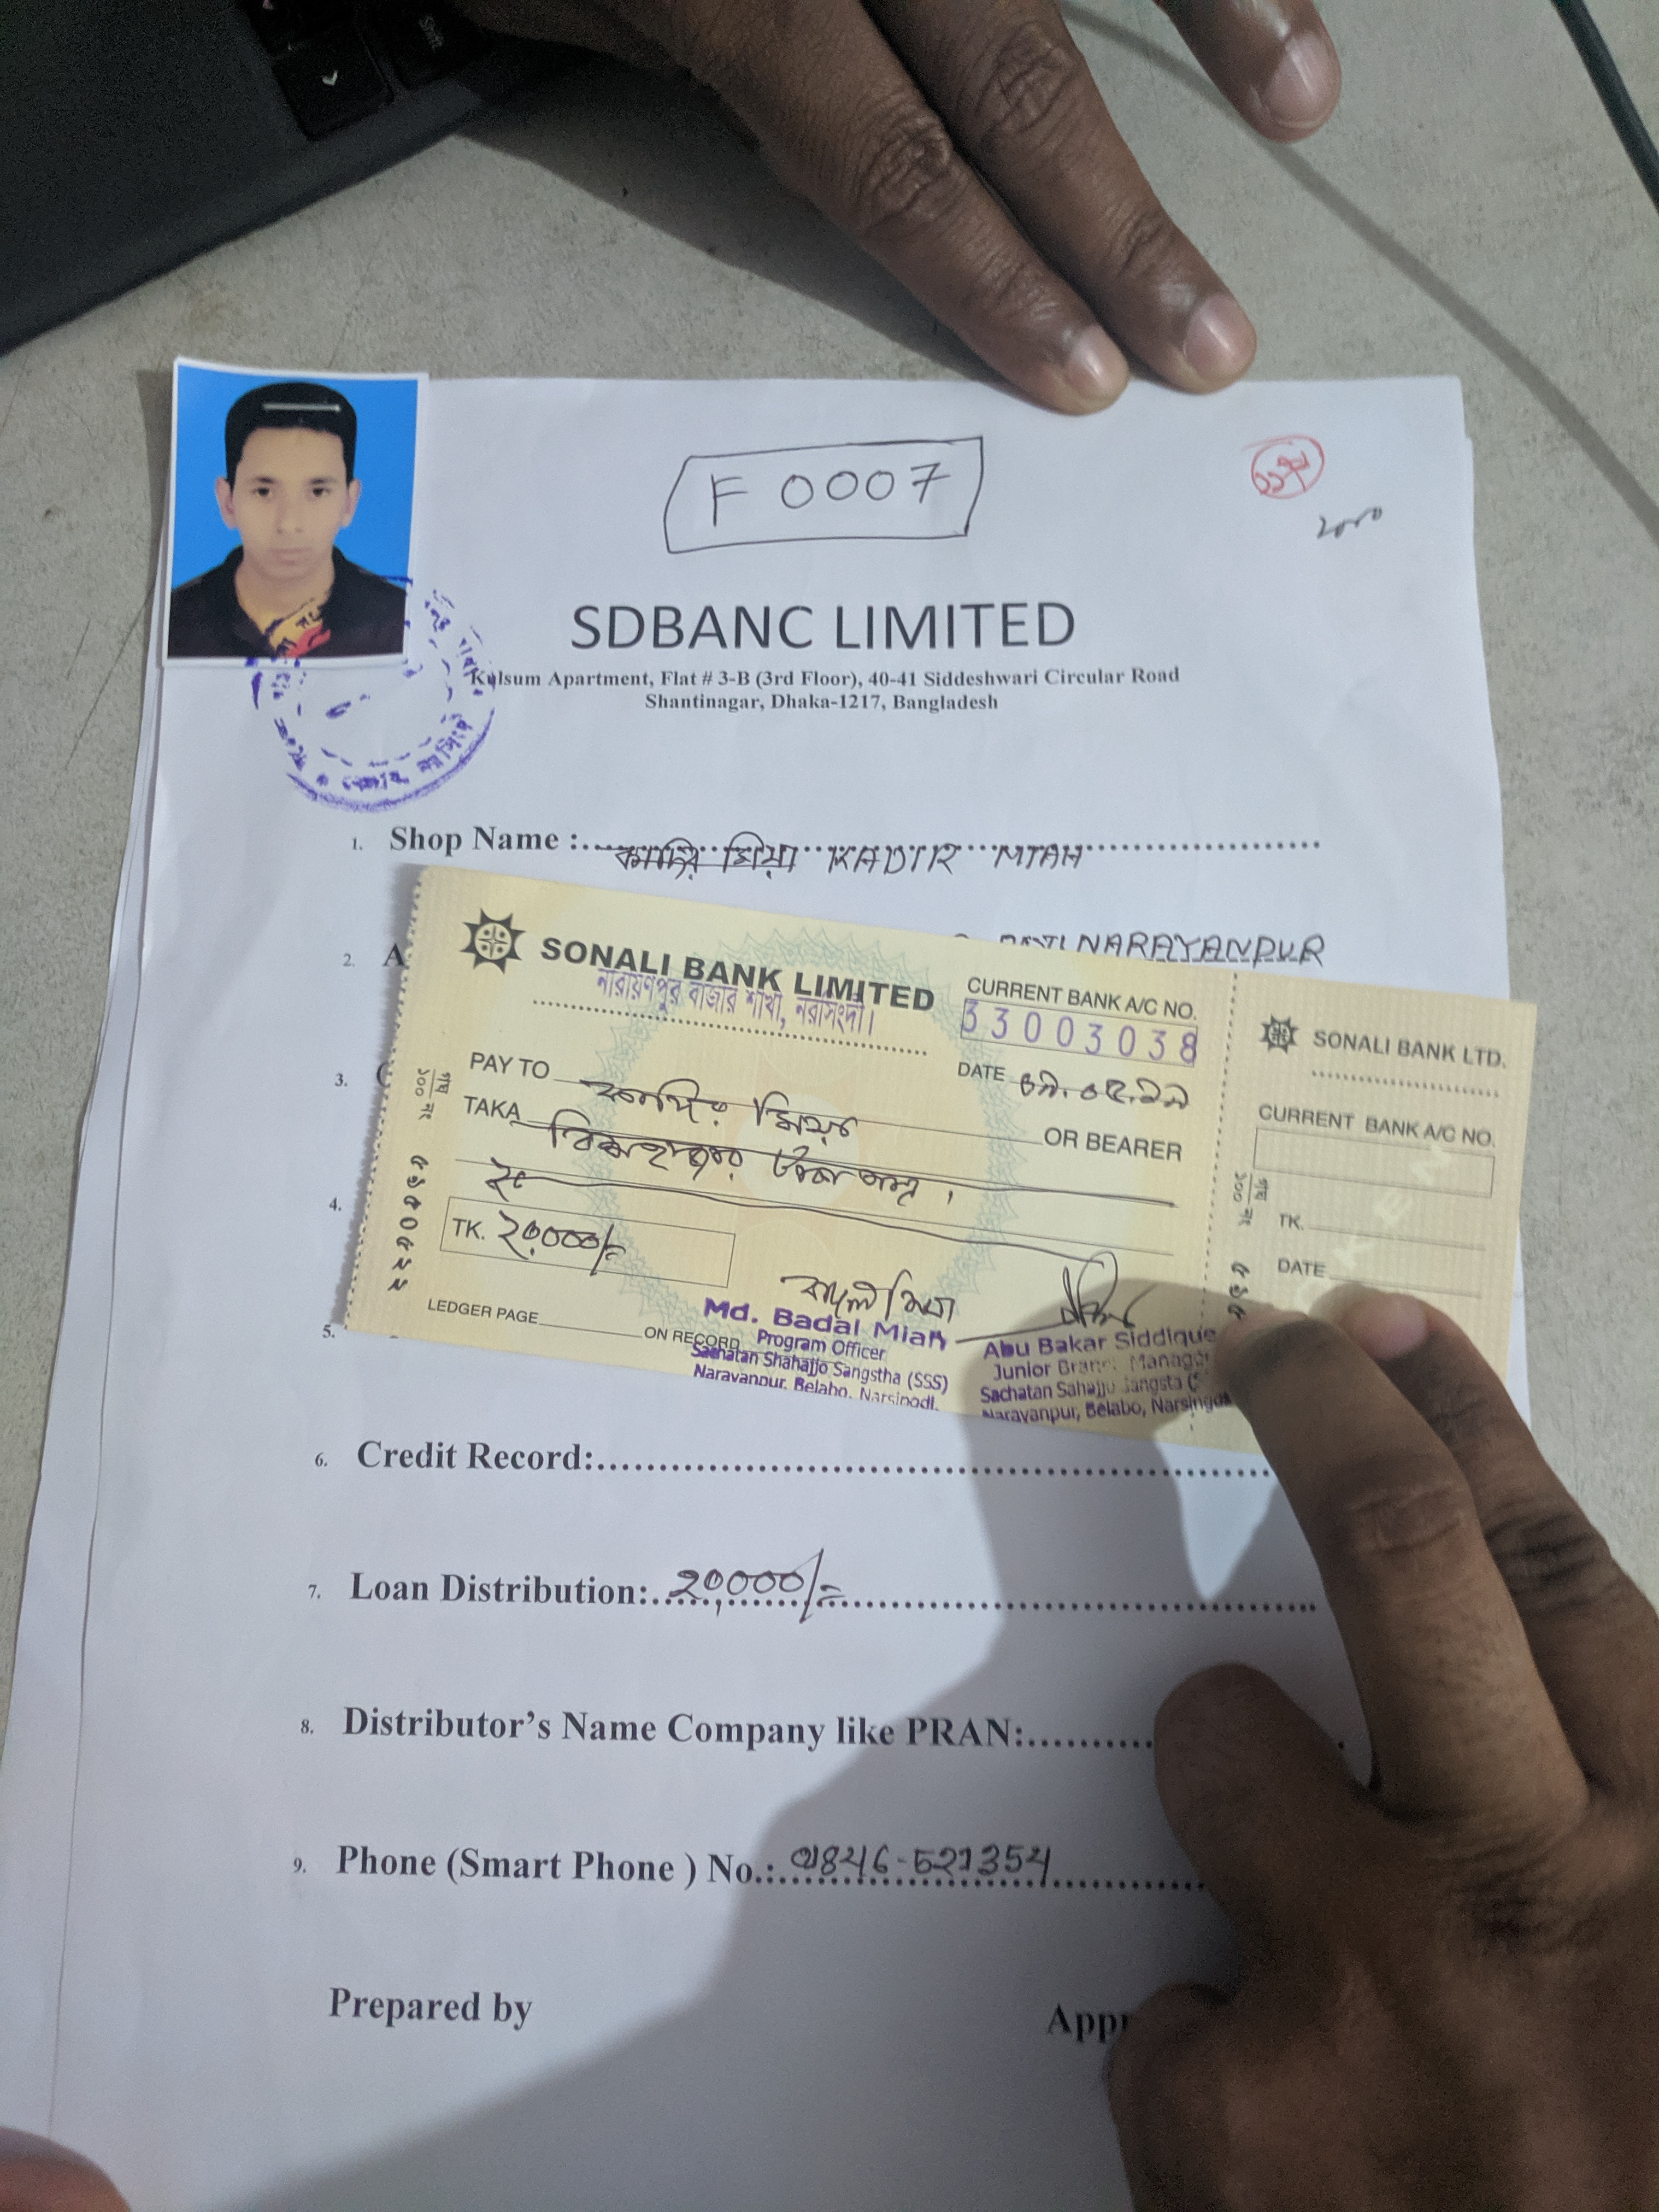 Shift
F 0007
SDBANC LIMITED
Kulsum Apartment, Flat # 3-B (3rd Floor), 40-41 Siddeshwari Circular Road
Shantinagar, Dhaka-1217, Bangladesh
1. Shop Name : কাদির মিয়া KADIR MIAH
2. A
NARAYANPUR
SONALI BANK LIMITED
নারায়ণপুর বাজার শাখা, নরসিংদী।
CURRENT BANK A/C NO.
33003038
PAY TO কাদির মিয়া
DATE
OR BEARER
TAKA বিশ হাজার টাকা মাত্র।
TK. ২০,০০০/=
LEDGER PAGE
ON RECORD
বাদল মিয়া
Md. Badal Miah
Program Officer
Sachatan Shahajjo Sangstha (SSS)
Narayanpur, Belabo, Narsingdi.
Abu Bakar Siddique
Junior Branch Manager
Sachatan Sahajju Sangsta
Narayanpur, Belabo,
SONALI BANK LTD.
CURRENT BANK A/C NO.
TK.
DATE
3.
4.
5.
6. Credit Record:
7. Loan Distribution: 20,000/=
8. Distributor's Name Company like PRAN:
9. Phone (Smart Phone ) No.: 01846-521354
Prepared by